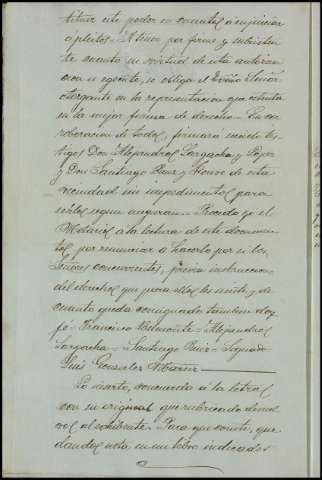 tituir este poder en cuanto a enjuiciar
o pleitos. A tener por firme y subsisten-
te cuanto en virtud de esta autoriza-
cion se egecute, se obliga el Señor
otorgante en la representacion que ostenta
en la mejor forma de derecho. En cor
roboracion de todo, firmará siendo tes-
tigos Don Alejandro Sorgacha y
y Don Santiago Ruiz y de esta
vecindad sin impedimento para
serlo segun aseguran. Procedo yo el
Notario a la lectura de este documen
to, por renunciar a hacerlo por sí los
Señores concurrentes, previa instruccion
del derecho que para ello les asiste, y de
cuanto queda consignado tambien doy
fe. Francisco Belmonte. Alejandro
Sorgacha. Santiago Ruiz. Signado
Luis Gonzalez
Lo inserto, concuerda a la letra
con su original que rubricado devuel
vo al exhibente. Para que conste, que
dando nota en mi libro indicador